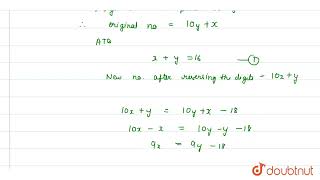 ∴ original no = 10y + x
ATQ
x + y = 16 — ①
Now no. after reversing the digits = 10x + y
10x + y = 10y + x - 18
10x - x = 10y - y - 18
9x = 9y - 18
doubtnut